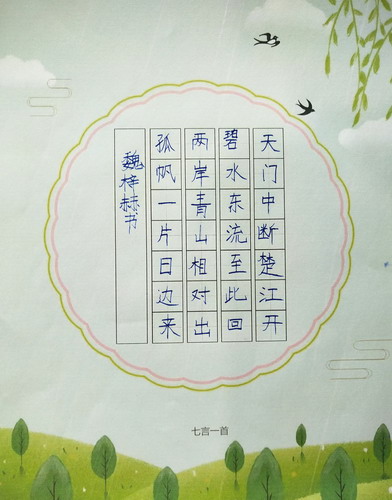 天门中断楚江开
碧水东流至此回
两岸青山相对出
孤帆一片日边来
魏梓赫书
七言一首